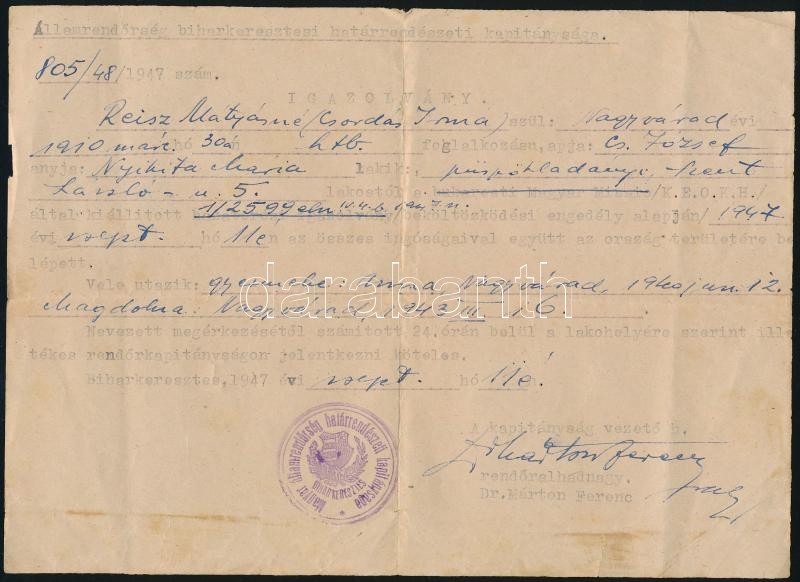 Államrendőrség biharkeresztesi határrendészeti kapitánysága.
805/48/1947 szám.
IGAZOLVÁNY.
Reisz Mátyásné/Csordás Irma/szül: Nagyvárad évi
1910 márc. hó 30án htb. foglalkozásu, apja: Cs. József
anyja: Nyikita Mária lakik: püspökladányi, Szent
László-u. 5. lakostól a budapesti Magyar /K.E.O.K.H./
által kiállitott 1/2599 eln beköltözködési engedély alapján/ 1947
évi szept. hó 11én az összes ingóságaival együtt az ország területére be
lépett.
Vele utazik: gyermeke: Anna, Nagyvárad, 1940 jun. 12.
Magdolna: Nagyvárad, 1943 III. 16.
Nevezett megérkezésétől számitott 24.órán belül a lakohelyére szerint ille
tékes rendőrkapitányságon jelentkezni köteles.
Biharkeresztes, 1947 évi szept. hó 11én.
A kapitányság vezető h.
Dr Márton Ferenc
rendőralhadnagy.
Dr. Márton Ferenc
Magyar államrendőrség határrendészeti kapitánysága
BIHARKERESZTES
darabanth